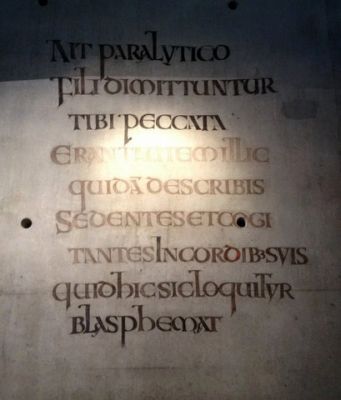 AIT PARALYTICO
FILI DIMITTUNTUR
TIBI·PECCATA
ERANT AUTEM ILLIC
QUIDĀ DESCRIBIS
SEDENTES ET COGI
TANTES IN CORDIB; SUIS
QUID HIC SIC LOQUITUR
BLASPHEMAT